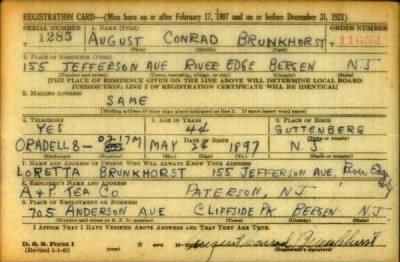 REGISTRATION CARD—(Men born on or after February 17, 1897 and on or before December 31, 1921)
SERIAL NUMBER 1. NAME (Print) ORDER NUMBER
1285 AUGUST CONRAD BRUNKHORST 11652
(First) (Middle) (Last)
2. PLACE OF RESIDENCE (Print)
155 JEFFERSON AVE RIVER EDGE BERGEN N.J
(Number and street) (Town, township, village, or city) (County) (State)
[THE PLACE OF RESIDENCE GIVEN ON THE LINE ABOVE WILL DETERMINE LOCAL BOARD
JURISDICTION; LINE 2 OF REGISTRATION CERTIFICATE WILL BE IDENTICAL]
3. MAILING ADDRESS
SAME
(Mailing address if other than place indicated on line 2. If same insert word same)
4. TELEPHONE 5. AGE IN YEARS 6. PLACE OF BIRTH
YES 44 GUTTENBERG
DATE OF BIRTH (Town or county)
ORADELL 8- 0217M MAY 1897 N.J
(Exchange) (Number) (Mo.) (Day) (Yr.) (State or country)
7. NAME AND ADDRESS OF PERSON WHO WILL ALWAYS KNOW YOUR ADDRESS
LORETTA BRUNKHORST 155 JEFFERSON AVE, River Edge
8. EMPLOYER'S NAME AND ADDRESS
A & P. TEA CO PATERSON, NJ
9. PLACE OF EMPLOYMENT OR BUSINESS
705 ANDERSON AVE CLIFFSIDE PK BERGEN N.J
(Number and street or R. F. D. number) (Town) (County) (State)
I AFFIRM THAT I HAVE VERIFIED ABOVE ANSWERS AND THAT THEY ARE TRUE.
D. S. S. Form 1
(Revised 1-1-42) (over) August Conrad Brunkhorst
(Registrant's signature)